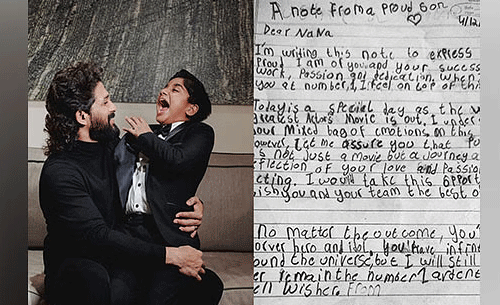 A note from a Proud Son
4/12/
Dear NaNa
I'm writing this note to express
Proud I am of you and your success
work, Passion and dedication. When I
you at number 1, I feel on top of th
Today is a special day as the w
greatest Actors Movie is out. I under
your Mixed bag of emotions on this
However, let me assure you that Pu
is not just a movie but a journey a
reflection of your love and Passion
acting. I would take this opport
wish you and your team the best o
No matter the outcome, You'
forever hero and idol. You have infin
around the universe, but I will still
remain the number 1 ardent
Well Wisher. From